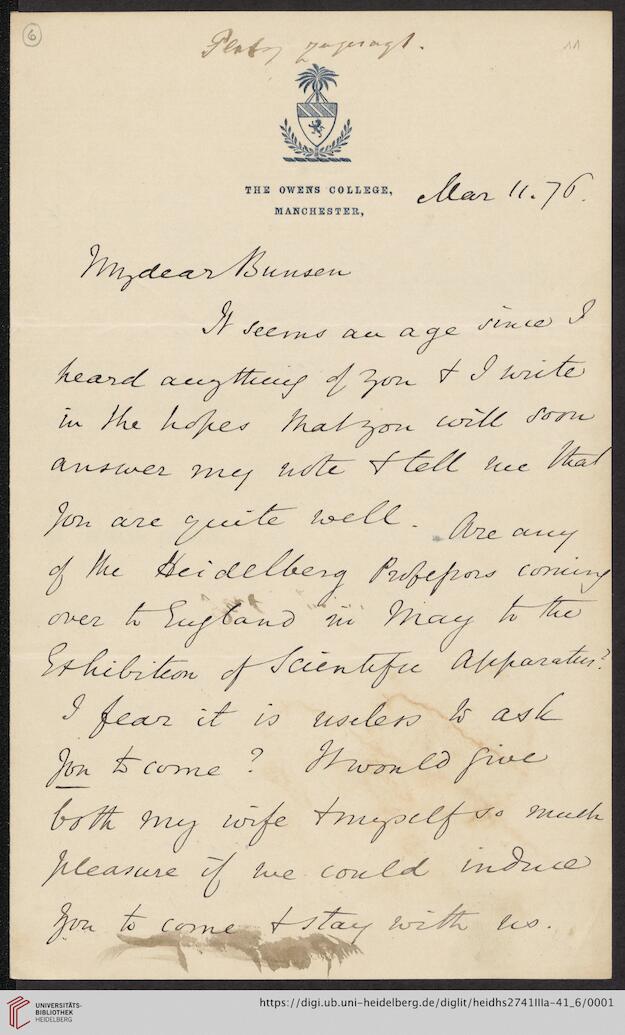 6
11
THE OWENS COLLEGE,
MANCHESTER,
Mar 11. 76.
My dear Bunsen
It seems an age since I
heard anything of you & I write
in the hopes that you will soon
answer my note & tell me that
you are quite well. Are any
of the Heidelberg Professors coming
over to England in May to the
Exhibition of Scientific Apparatus?
I fear it is useless to ask
you to come? It would give
both my wife & myself so much
pleasure if we could induce
you to come & stay with us.
UNIVERSITÄTS-
BIBLIOTHEK
HEIDELBERG
https://digi.ub.uni-heidelberg.de/diglit/heidhs2741IIIa-41_6/0001